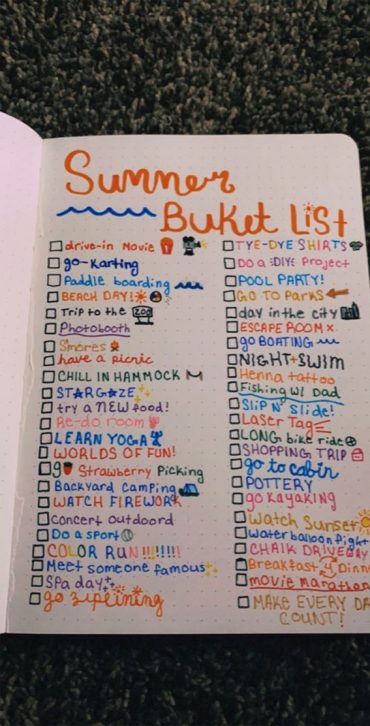 Summer
Buket List
drive-in Movie
go-Karting
Paddle boarding
BEACH DAY!
Trip to the ZOO
Photobooth
Smores
have a picnic
CHILL IN HAMMOCK
STARGAZE
try a NEW food!
Re-do room
LEARN YOGA
WORLDS OF FUN!
go Strawberry Picking
Backyard Camping
WATCH FIREWORK
Concert outdoord
Do a sport
COLOR RUN!!!!!!!
Meet someone famous
Spa day
go ziplining
TYE-DYE SHIRTS
Do a DIY Project
POOL PARTY!
GO TO PARKS
day in the city
ESCAPE ROOM
go BOATING
NIGHT SWIM
Henna tattoo
Fishing W/ Dad
Slip N' Slide!
Laser Tag
LONG bike ride
SHOPPING TRIP
go to cabin
POTTERY
go Kayaking
Watch Sunset
Water balloon fight
CHALK DRIVEWAY
Breakfast 4 Dinn
movie marathon
MAKE EVERY DA
COUNT!